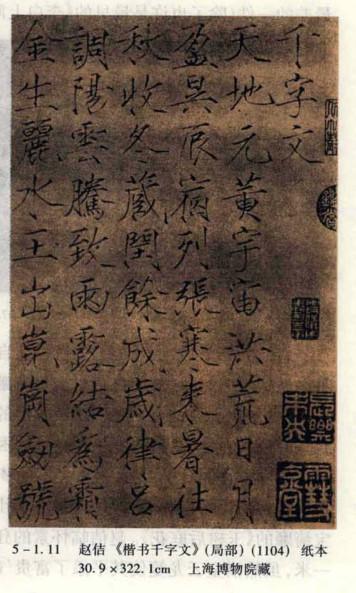 千字文
天地元黃宇宙洪荒日月
盈昃辰宿列張寒来暑往
秋收冬蔵閏餘成歳律呂
調陽雲騰致雨露結為霜
金生麗水玉出崑崗劔號
5-1.11 赵佶《楷书千字文》(局部)(1104) 纸本
30.9×322.1cm 上海博物院藏